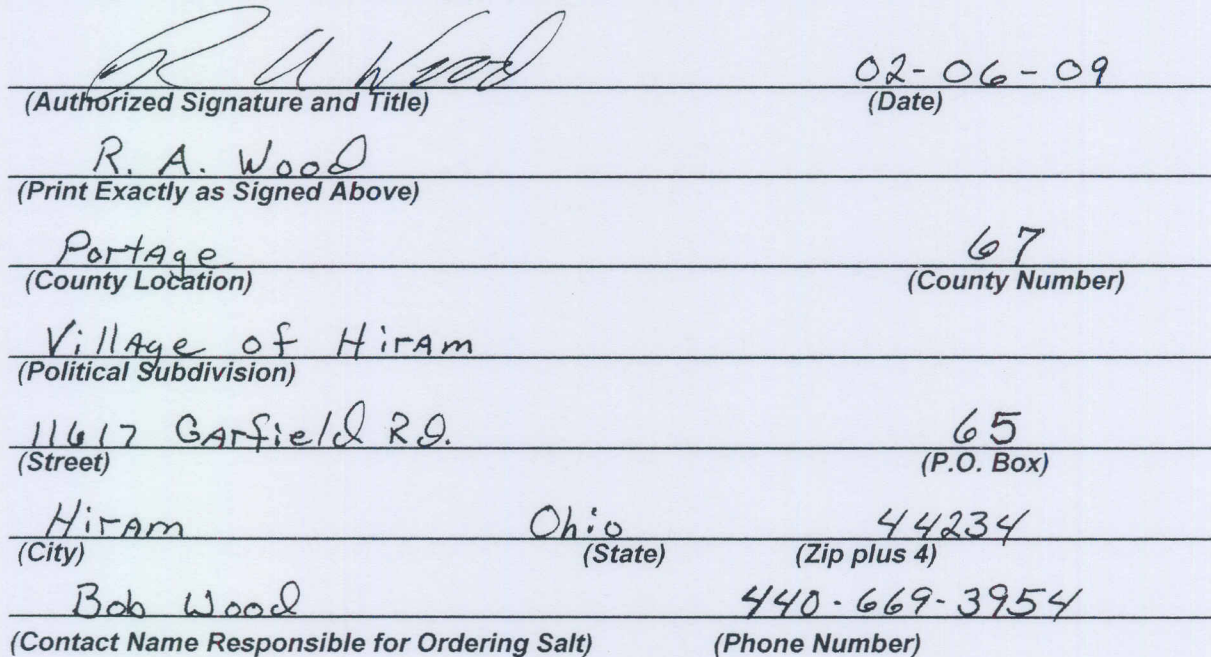 R A Wood 02-06-09
(Authorized Signature and Title) (Date)
R. A. Wood
(Print Exactly as Signed Above)
Portage 67
(County Location) (County Number)
Village of Hiram
(Political Subdivision)
11617 Garfield Rd. 65
(Street) (P.O. Box)
Hiram Ohio 44234
(City) (State) (Zip plus 4)
Bob Wood 440-669-3954
(Contact Name Responsible for Ordering Salt) (Phone Number)